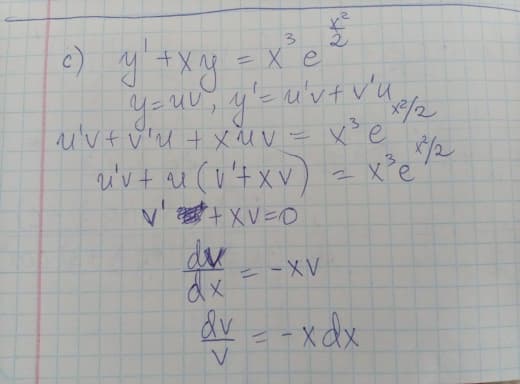 c) y' + xy = x³ e^(x²/2)
y = uv, y' = u'v + v'u
u'v + v'u + xuv = x³ e^(x²/2)
u'v + u(v' + xv) = x³ e^(x²/2)
v' + xv = 0
dv/dx = -xv
dv/v = -x dx